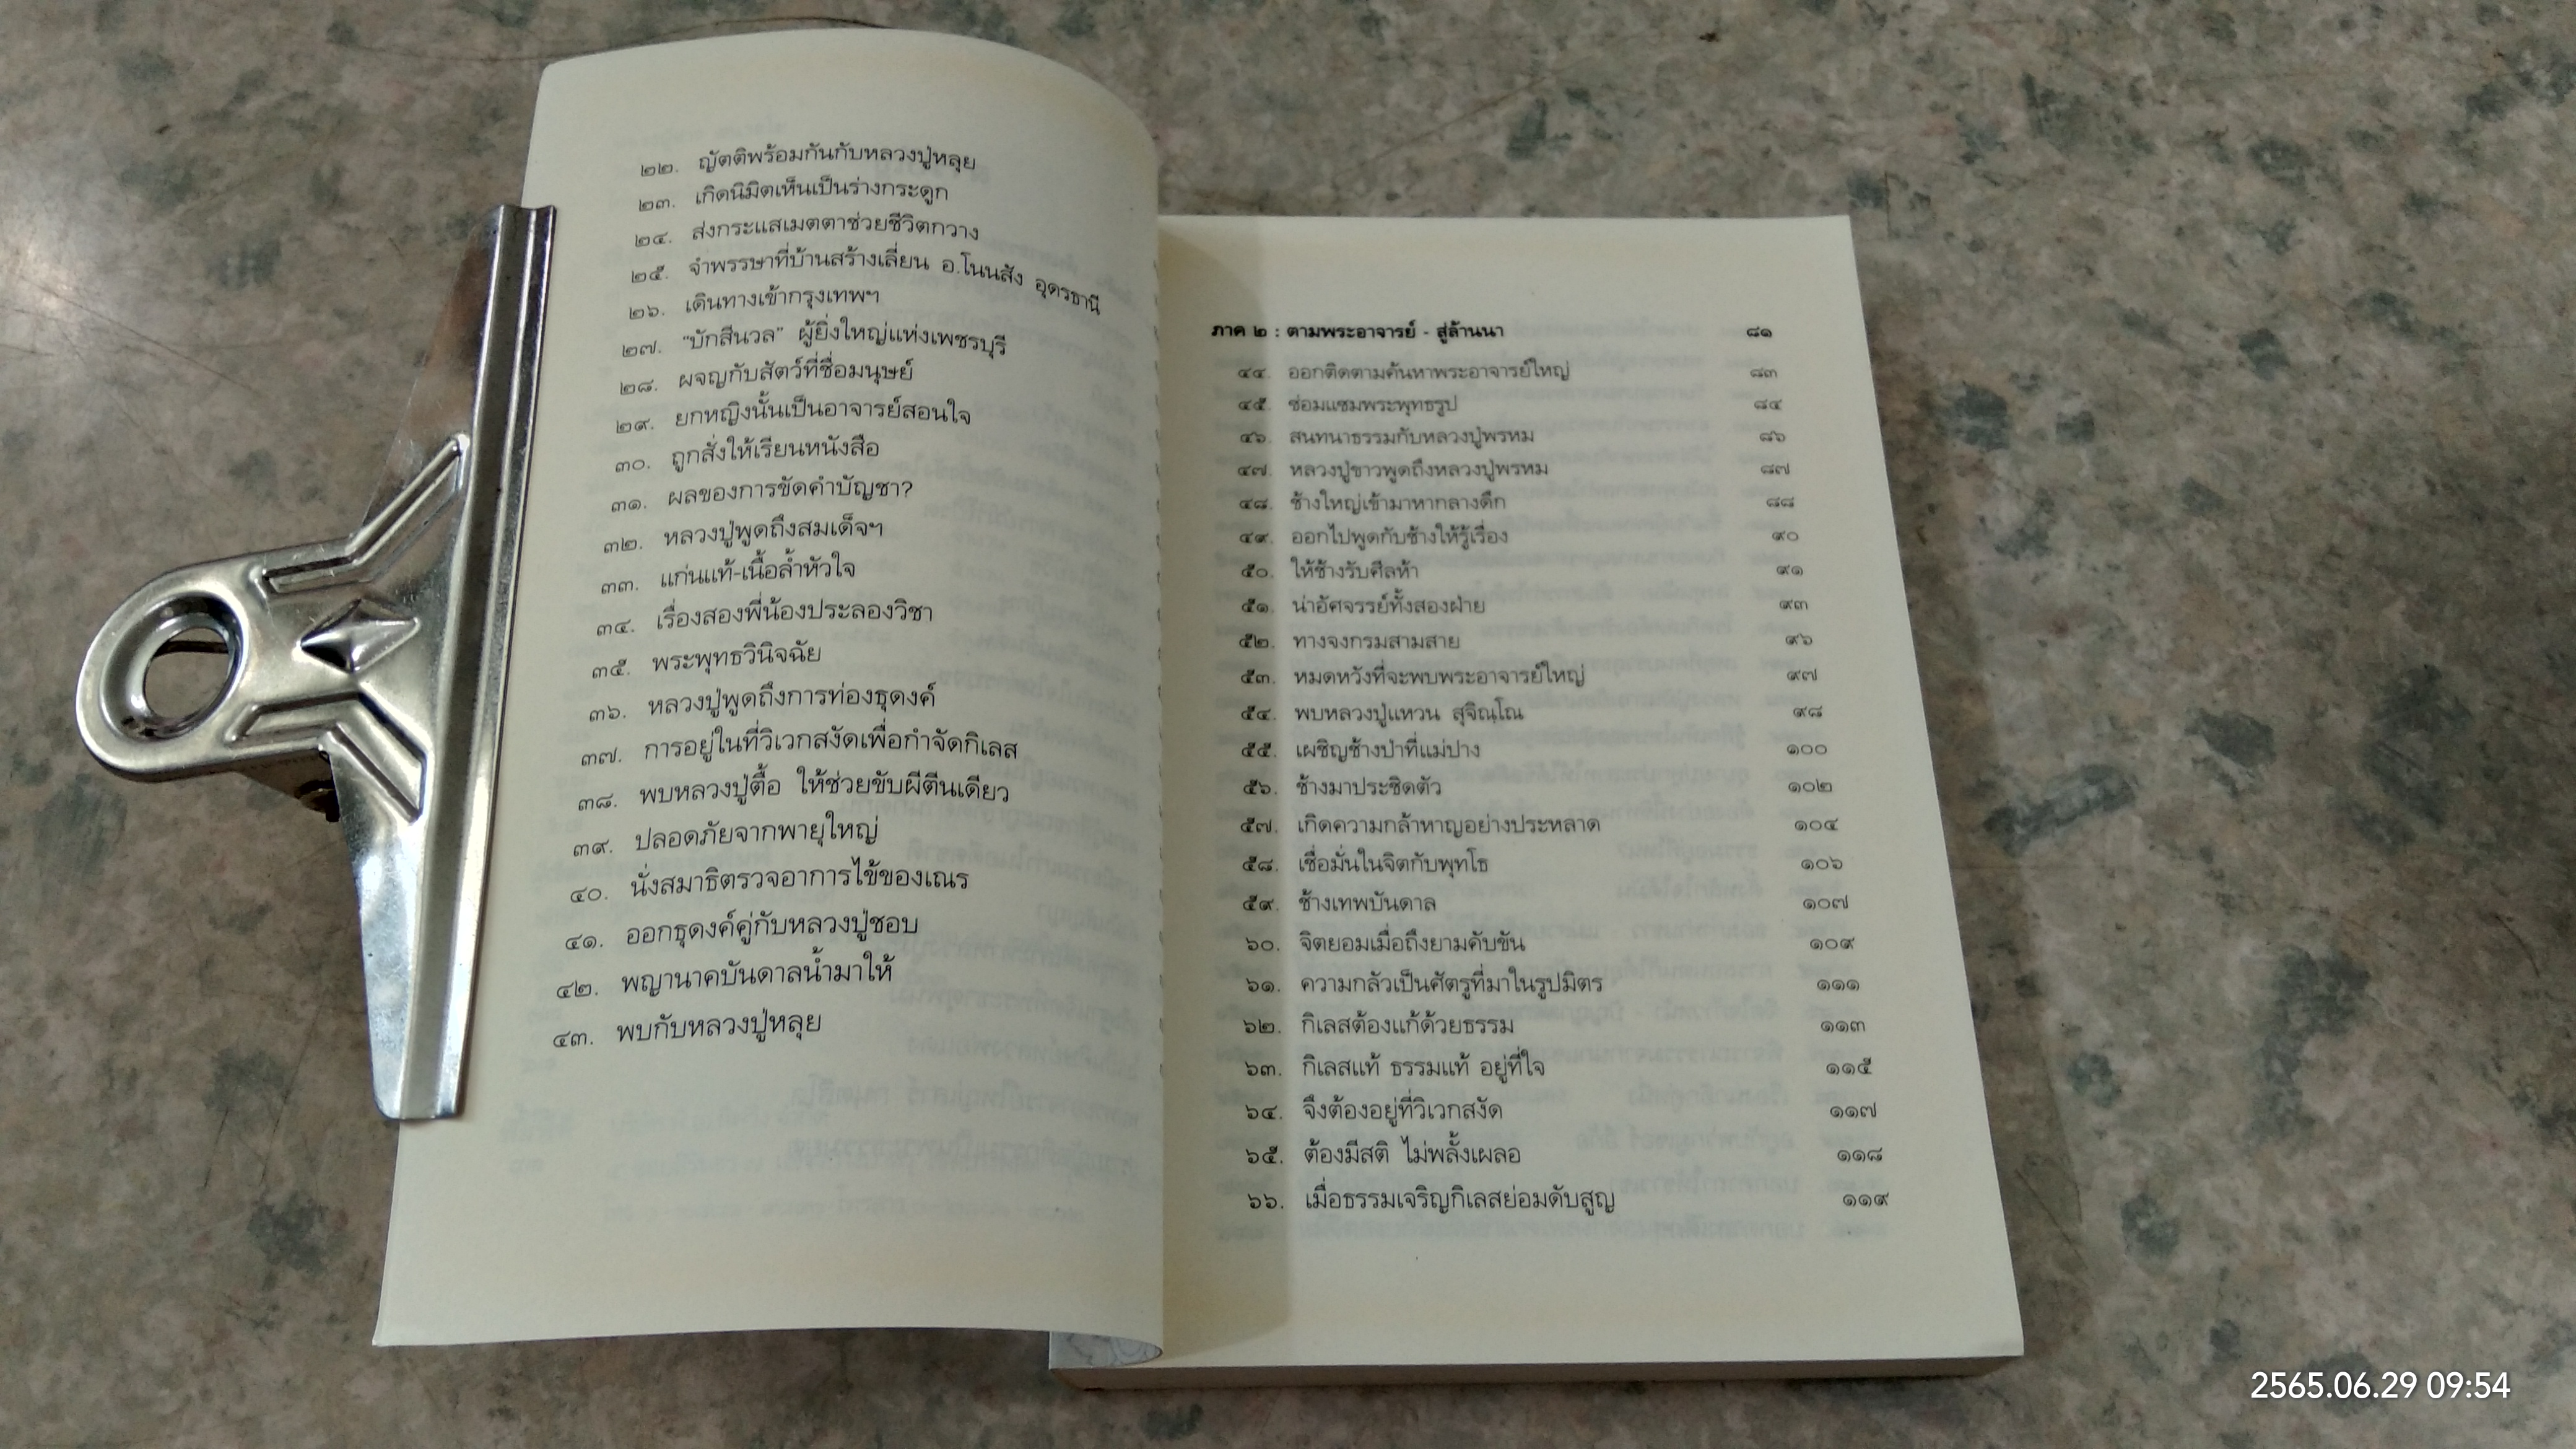 ๒๒. ญัตติพร้อมกันกับหลวงปู่หลุย
๒๓. เกิดนิมิตเห็นเป็นร่างกระดูก
๒๔. ส่งกระแสเมตตาช่วยชีวิตกวาง
๒๕. จำพรรษาที่บ้านสร้างเลี่ยน อ.โนนสัง อุดรธานี
๒๖. เดินทางเข้ากรุงเทพฯ
๒๗. "บักสีนวล" ผู้ยิ่งใหญ่แห่งเพชรบุรี
๒๘. ผจญกับสัตว์ที่ชื่อมนุษย์
๒๙. ยกหญิงนั้นเป็นอาจารย์สอนใจ
๓๐. ถูกสั่งให้เรียนหนังสือ
๓๑. ผลของการขัดคำบัญชา?
๓๒. หลวงปู่พูดถึงสมเด็จฯ
๓๓. แก่นแท้-เนื้อล้ำหัวใจ
๓๔. เรื่องสองพี่น้องประลองวิชา
๓๕. พระพุทธวินิจฉัย
๓๖. หลวงปู่พูดถึงการท่องธุดงค์
๓๗. การอยู่ในที่วิเวกสงัดเพื่อกำจัดกิเลส
๓๘. พบหลวงปู่ตื้อ ให้ช่วยขับผีตีนเดียว
๓๙. ปลอดภัยจากพายุใหญ่
๔๐. นั่งสมาธิตรวจอาการไข้ของเณร
๔๑. ออกธุดงค์คู่กับหลวงปู่ชอบ
๔๒. พญานาคบันดาลน้ำมาให้
๔๓. พบกับหลวงปู่หลุย
ภาค ๒ : ตามพระอาจารย์ - สู่ล้านนา ๘๑
๔๔. ออกติดตามค้นหาพระอาจารย์ใหญ่ ๘๓
๔๕. ซ่อมแซมพระพุทธรูป ๘๔
๔๖. สนทนาธรรมกับหลวงปู่พรหม ๘๖
๔๗. หลวงปู่ขาวพูดถึงหลวงปู่พรหม ๘๗
๔๘. ช้างใหญ่เข้ามาหากลางดึก ๘๘
๔๙. ออกไปพูดกับช้างให้รู้เรื่อง ๙๐
๕๐. ให้ช้างรับศีลห้า ๙๑
๕๑. น่าอัศจรรย์ทั้งสองฝ่าย ๙๓
๕๒. ทางจงกรมสามสาย ๙๖
๕๓. หมดหวังที่จะพบพระอาจารย์ใหญ่ ๙๗
๕๔. พบหลวงปู่แหวน สุจิณฺโณ ๙๘
๕๕. เผชิญช้างป่าที่แม่ปาง ๑๐๐
๕๖. ช้างมาประชิดตัว ๑๐๒
๕๗. เกิดความกล้าหาญอย่างประหลาด ๑๐๔
๕๘. เชื่อมั่นในจิตกับพุทโธ ๑๐๖
๕๙. ช้างเทพบันดาล ๑๐๗
๖๐. จิตยอมเมื่อถึงยามคับขัน ๑๐๙
๖๑. ความกลัวเป็นศัตรูที่มาในรูปมิตร ๑๑๑
๖๒. กิเลสต้องแก้ด้วยธรรม ๑๑๓
๖๓. กิเลสแท้ ธรรมแท้ อยู่ที่ใจ ๑๑๕
๖๔. จึงต้องอยู่ที่วิเวกสงัด ๑๑๗
๖๕. ต้องมีสติ ไม่พลั้งเผลอ ๑๑๘
๖๖. เมื่อธรรมเจริญกิเลสย่อมดับสูญ ๑๑๙
2565.06.29 09:54